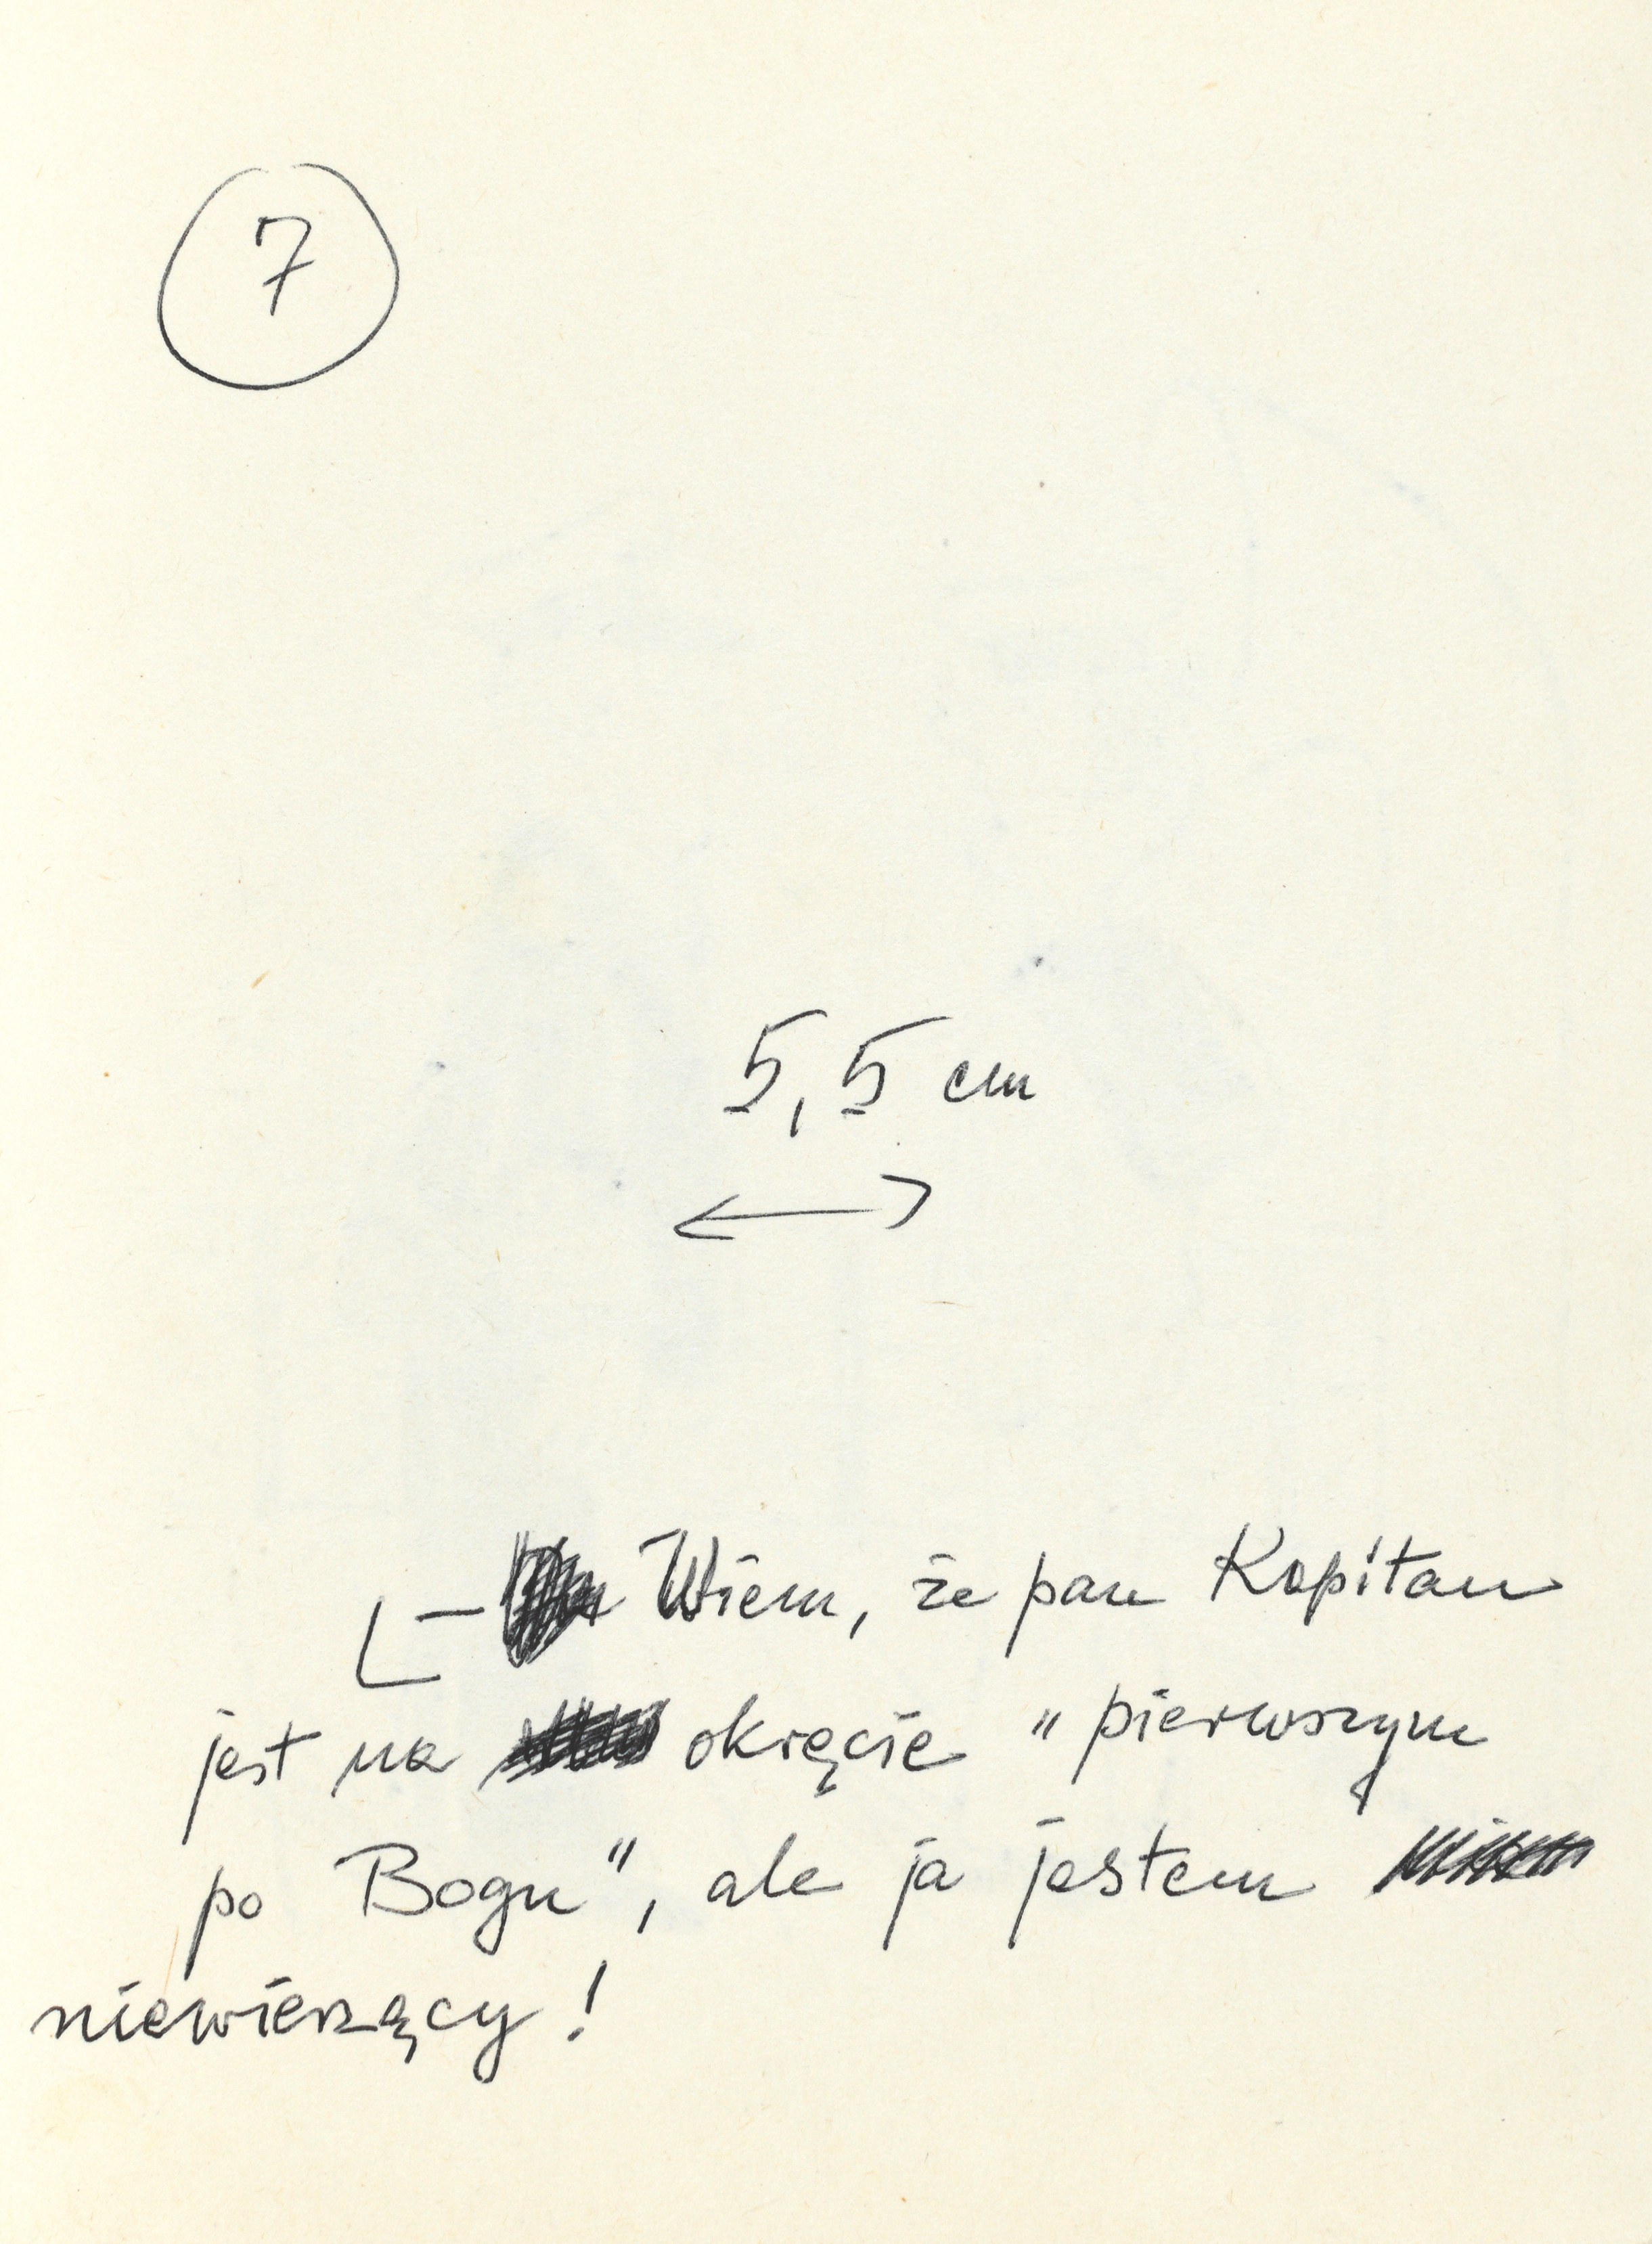 7
5,5 cm
– Wiem, że pan Kapitan
jest na okręcie "pierwszym
po Bogu", ale ja jestem
niewierzący!